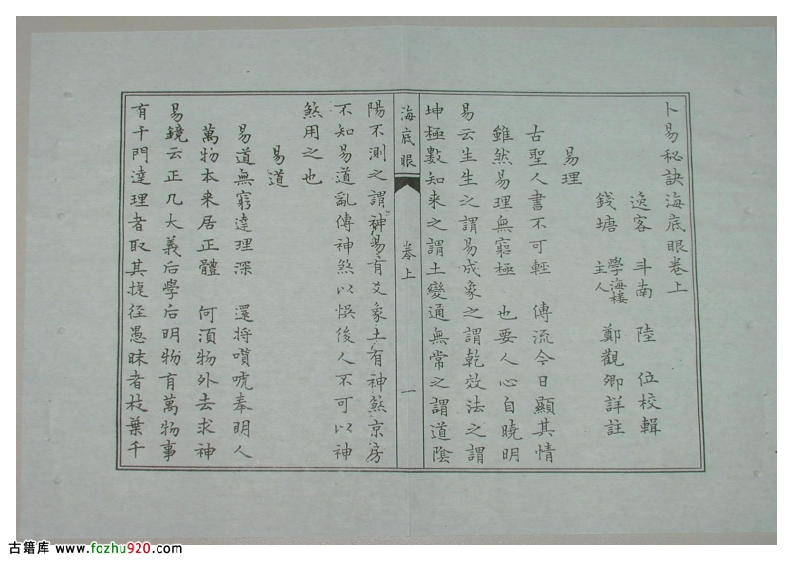 卜易秘訣海底眼卷上
逸客 斗南 陸 位校輯
錢塘 學海樓主人 鄭觀卿詳註
易理
古聖人書不可輕 傳流今日顯其情
雖然易理無窮極 也要人心自曉明
易云生生之謂易成象之謂乾效法之謂
坤極數知来之謂土變通無常之謂道陰
海底眼 卷上 一
陽不測之謂神易有爻象土有神煞京房
不知易道亂傳神煞以悞後人不可以神
煞用之也
易道
易道無窮達理深 還将嘳唬奉明人
萬物本来居正體 何湏物外去求神
易鏡云正几大義后學后明物有萬物事
有千門達理者取其捷徑愚昧者枝葉千
古籍库 www.fozhu920.com